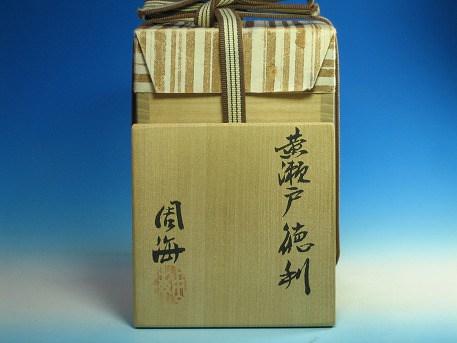 黄瀬戸 徳利
周海